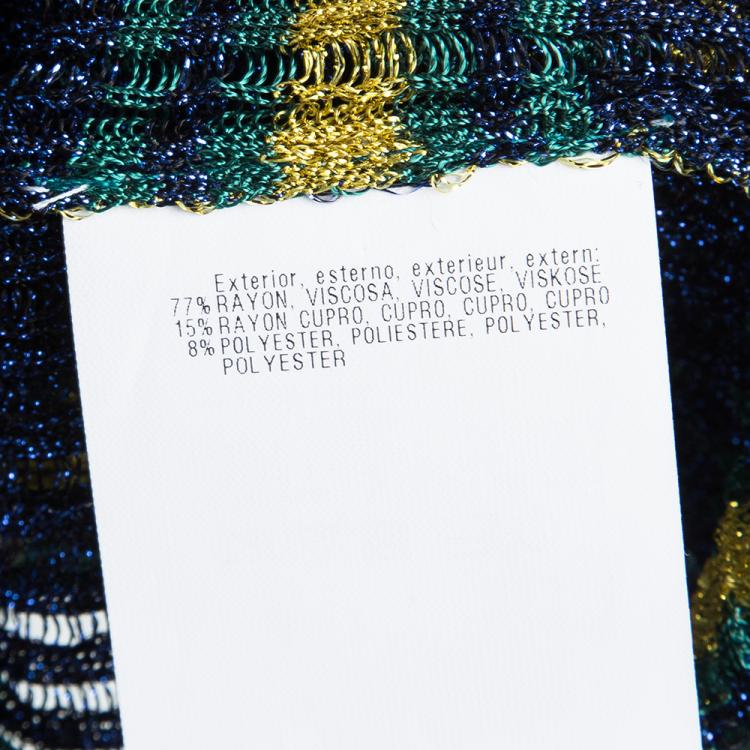 Exterior, esterno, exterieur, extern:
77% RAYON, VISCOSA, VISCOSE, VISKOSE
15% RAYON CUPRO, CUPRO, CUPRO, CUPRO
8% POLYESTER, POLIESTERE, POLYESTER,
POLYESTER